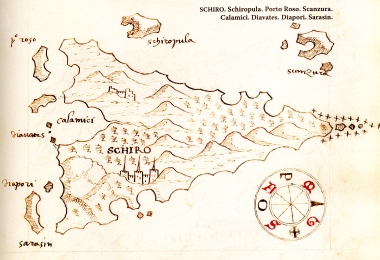 SCHIRO. Schiropula. Porto Roso. Scanzura.
Calamici. Diavates. Diapori. Sarasin.
p.º roso
schiropula
scanzura
calamici
diavates
SCHIRO
diapori
sarasin
P
G
A
O
S